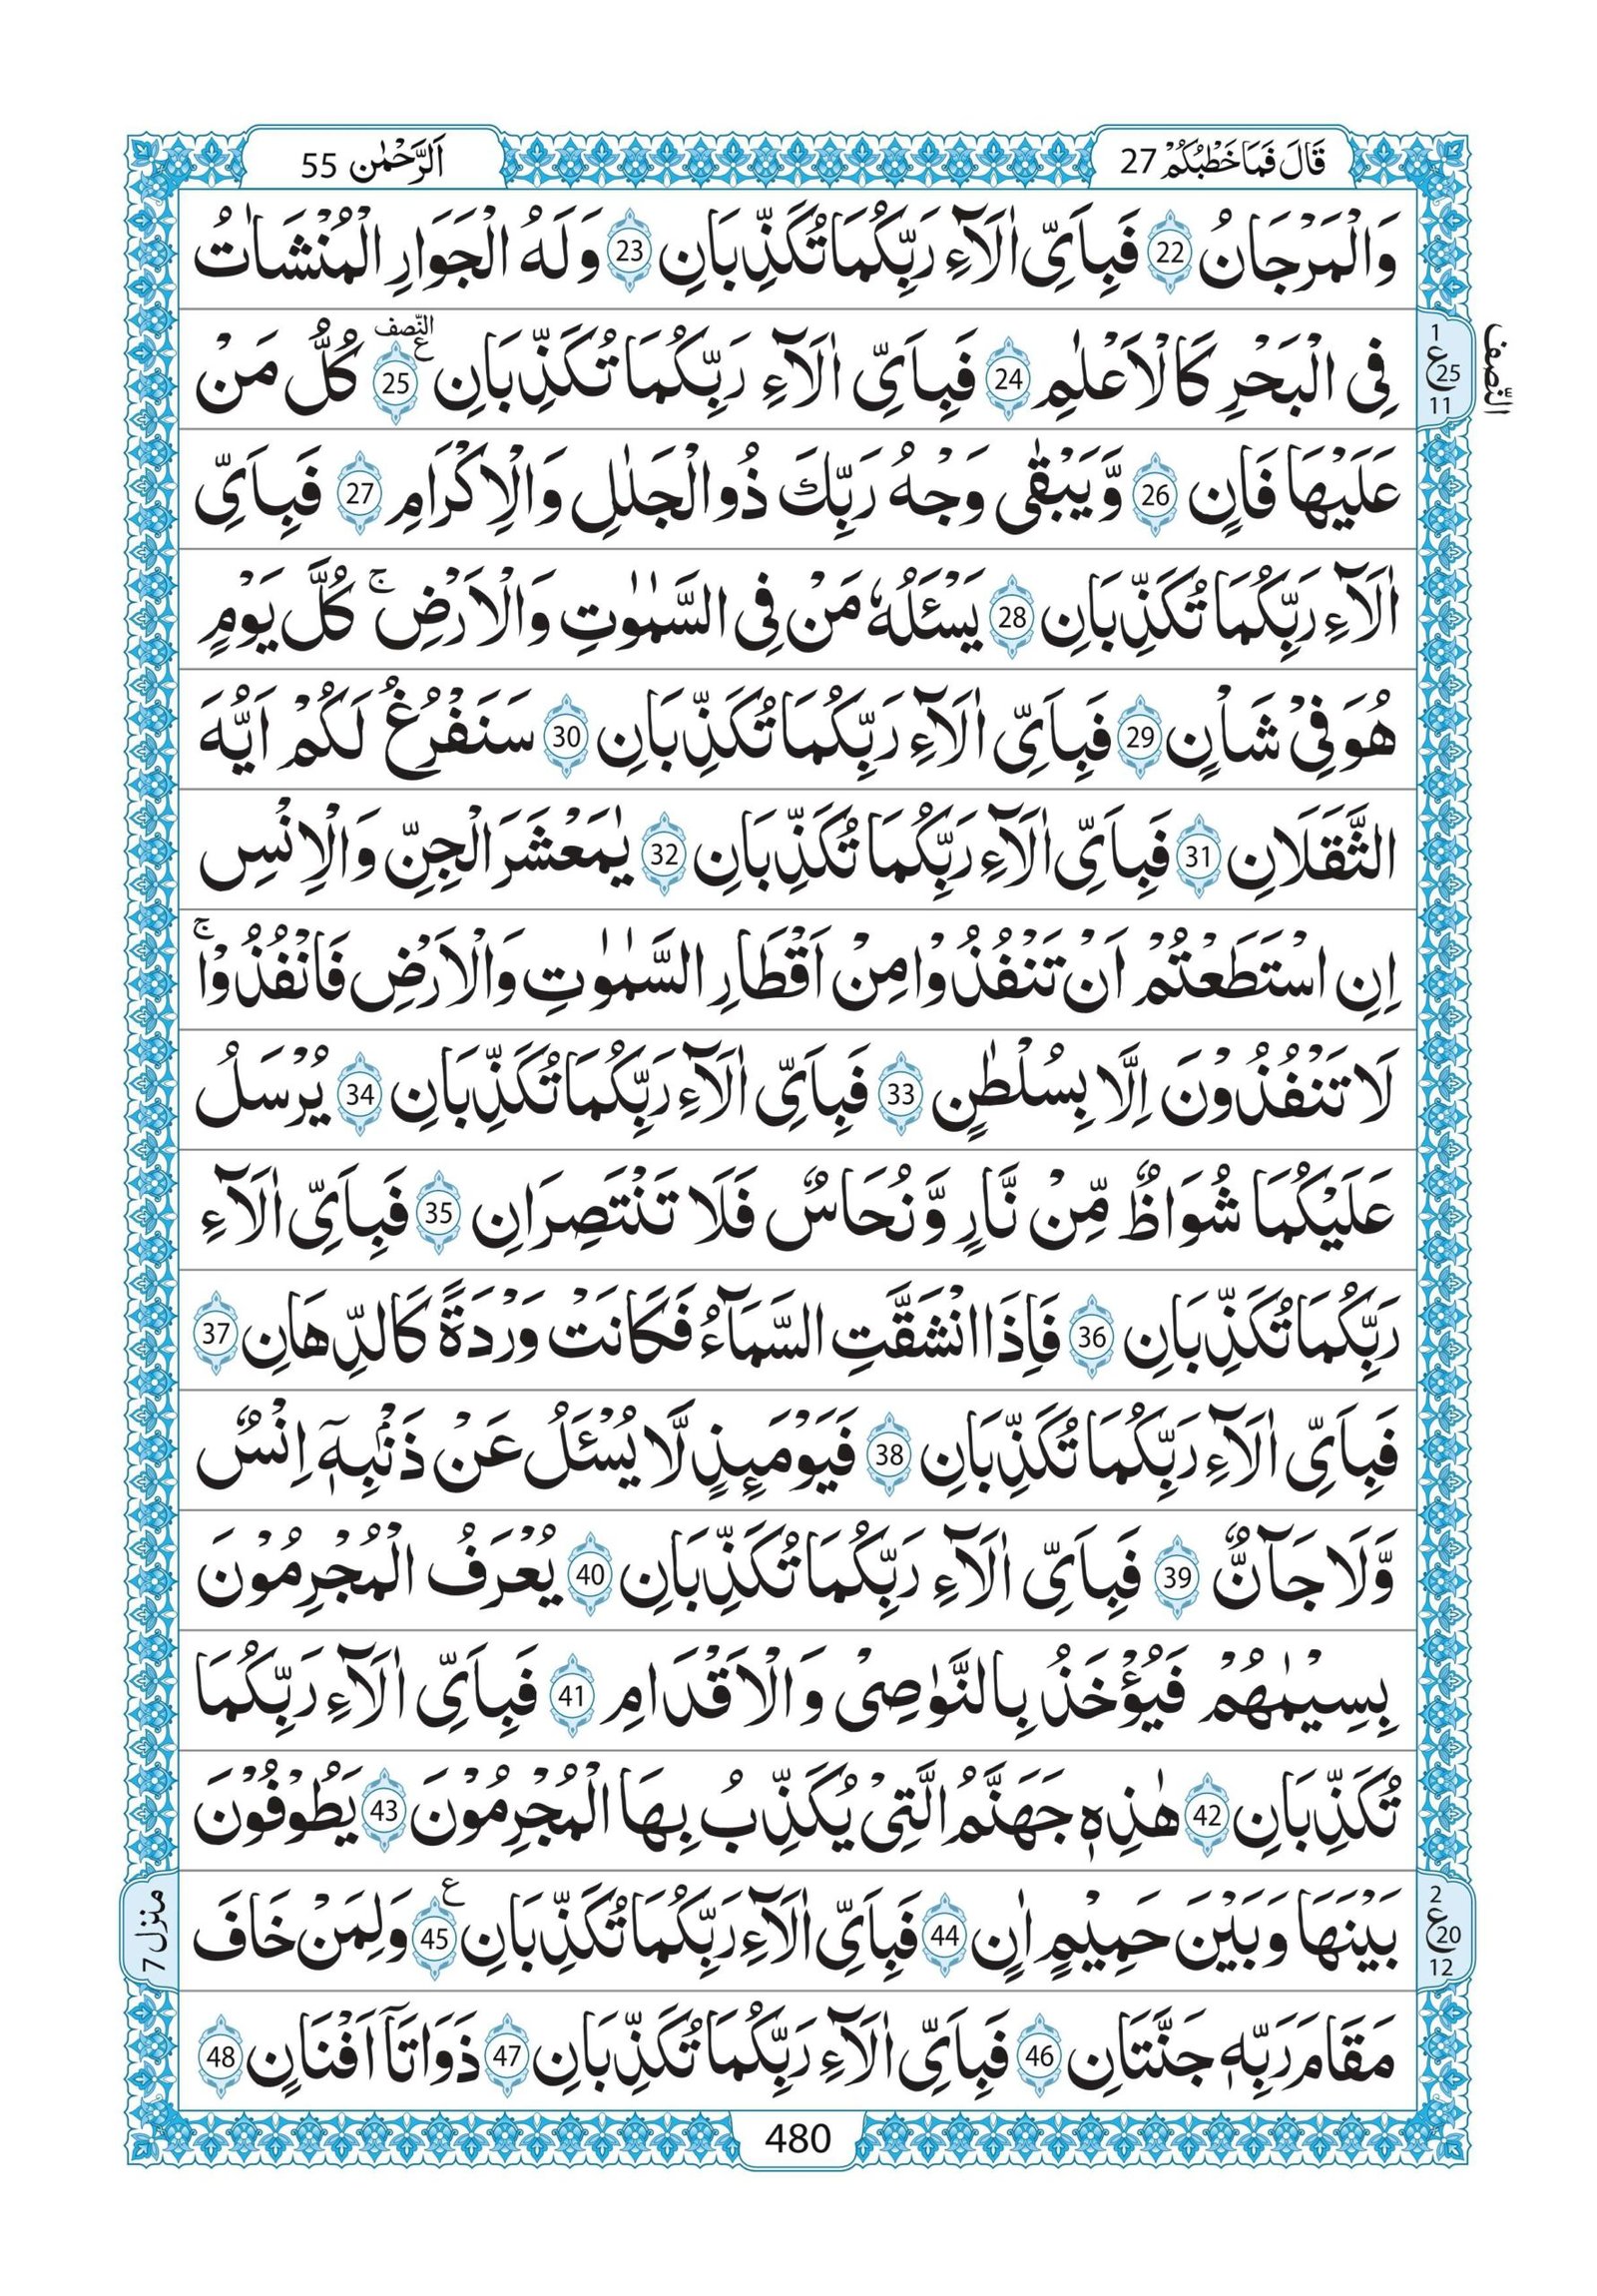 قَالَ فَمَا خَطْبُكُمْ 27
اَلرَّحْمٰن 55
وَالْمَرْجَانُ 22 فَبِاَىِّ اٰلَآءِ رَبِّكُمَا تُكَذِّبَانِ 23 وَلَهُ الْجَوَارِ الْمُنْشَاٰتُ
فِى الْبَحْرِ كَالْاَعْلٰمِ 24 فَبِاَىِّ اٰلَآءِ رَبِّكُمَا تُكَذِّبَانِ ع النّصف 25 كُلُّ مَنْ
1 ع 25 11
النّصف
عَلَيْهَا فَانٍ 26 وَّيَبْقٰى وَجْهُ رَبِّكَ ذُو الْجَلٰلِ وَالْاِكْرَامِ 27 فَبِاَىِّ
اٰلَآءِ رَبِّكُمَا تُكَذِّبَانِ 28 يَسْـَٔلُهٗ مَنْ فِى السَّمٰوٰتِ وَالْاَرْضِ ۚ كُلَّ يَوْمٍ
هُوَ فِىْ شَاْنٍ 29 فَبِاَىِّ اٰلَآءِ رَبِّكُمَا تُكَذِّبَانِ 30 سَنَفْرُغُ لَكُمْ اَيُّهَ
الثَّقَلَانِ 31 فَبِاَىِّ اٰلَآءِ رَبِّكُمَا تُكَذِّبَانِ 32 يٰمَعْشَرَ الْجِنِّ وَالْاِنْسِ
اِنِ اسْتَطَعْتُمْ اَنْ تَنْفُذُوْا مِنْ اَقْطَارِ السَّمٰوٰتِ وَالْاَرْضِ فَانْفُذُوْا ۚ
لَا تَنْفُذُوْنَ اِلَّا بِسُلْطٰنٍ 33 فَبِاَىِّ اٰلَآءِ رَبِّكُمَا تُكَذِّبَانِ 34 يُرْسَلُ
عَلَيْكُمَا شُوَاظٌ مِّنْ نَّارٍ وَّنُحَاسٌ فَلَا تَنْتَصِرَانِ 35 فَبِاَىِّ اٰلَآءِ
رَبِّكُمَا تُكَذِّبَانِ 36 فَاِذَا انْشَقَّتِ السَّمَآءُ فَكَانَتْ وَرْدَةً كَالدِّهَانِ 37
فَبِاَىِّ اٰلَآءِ رَبِّكُمَا تُكَذِّبَانِ 38 فَيَوْمَىِٕذٍ لَّا يُسْـَٔلُ عَنْ ذَنْۢبِهٖٓ اِنْسٌ
وَّلَا جَآنٌّ 39 فَبِاَىِّ اٰلَآءِ رَبِّكُمَا تُكَذِّبَانِ 40 يُعْرَفُ الْمُجْرِمُوْنَ
بِسِيْمٰهُمْ فَيُؤْخَذُ بِالنَّوَاصِىْ وَالْاَقْدَامِ 41 فَبِاَىِّ اٰلَآءِ رَبِّكُمَا
تُكَذِّبَانِ 42 هٰذِهٖ جَهَنَّمُ الَّتِىْ يُكَذِّبُ بِهَا الْمُجْرِمُوْنَ 43 يَطُوْفُوْنَ
بَيْنَهَا وَبَيْنَ حَمِيْمٍ اٰنٍ 44 فَبِاَىِّ اٰلَآءِ رَبِّكُمَا تُكَذِّبَانِ ع 45 وَلِمَنْ خَافَ
2 ع 20 12
منزل 7
مَقَامَ رَبِّهٖ جَنَّتَانِ 46 فَبِاَىِّ اٰلَآءِ رَبِّكُمَا تُكَذِّبَانِ 47 ذَوَاتَآ اَفْنَانٍ 48
480